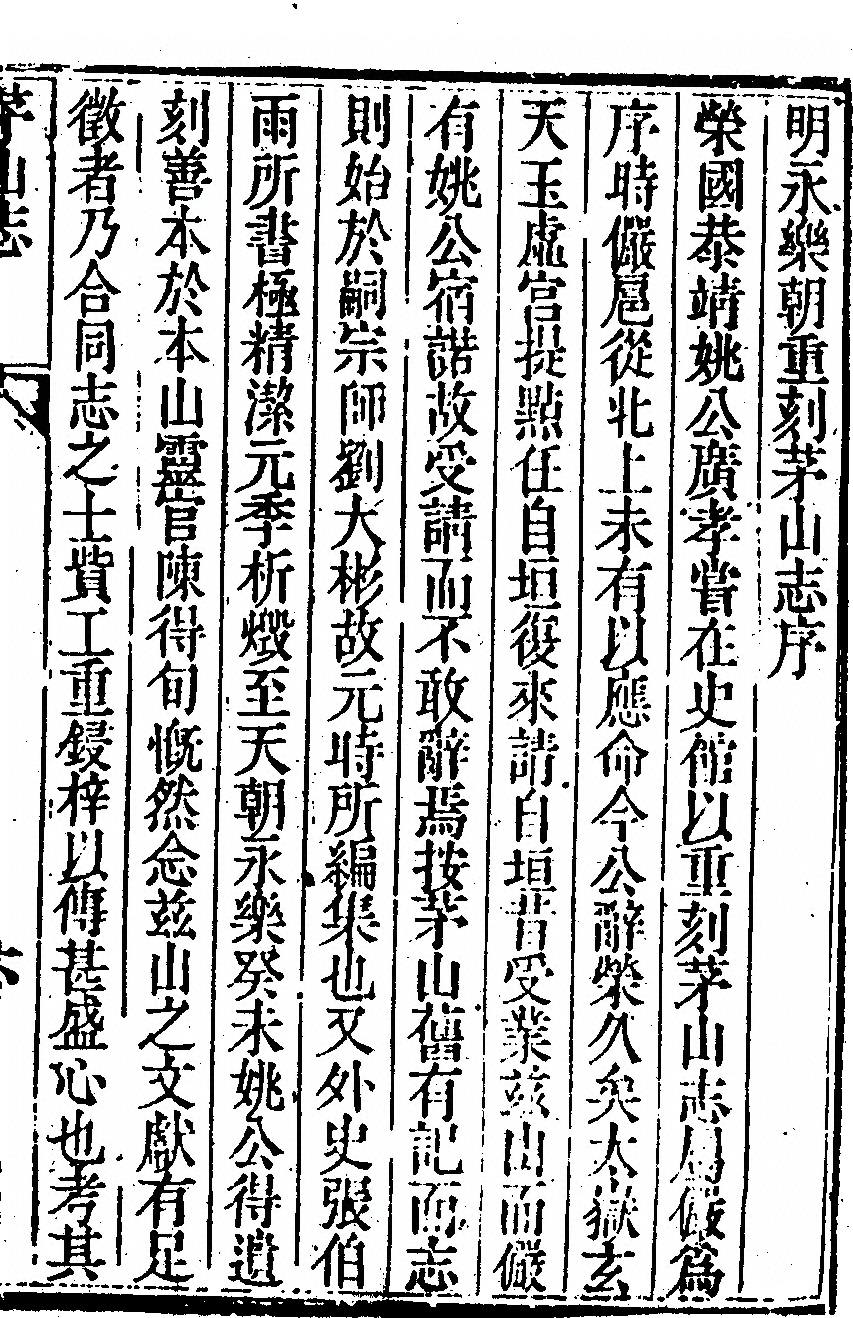 明永樂朝重刻茅山志序
榮國恭靖姚公廣孝嘗在史館以重刻茅山志屬儼爲
序時儼扈從北上未有以應命今公辭榮久矣太嶽玄
天玉虛宮提點任自垣復來請自垣昔受業茲山而儼
有姚公宿諾故受請而不敢辭焉按茅山舊有記而志
則始於嗣宗師劉大彬故元時所編集也又外史張伯
雨所書極精潔元季析燬至天朝永樂癸未姚公得遺
刻善本於本山靈官陳得旬慨然念茲山之文獻有足
徵者乃合同志之士貲工重鋟梓以傳甚盛心也考其
茅山志